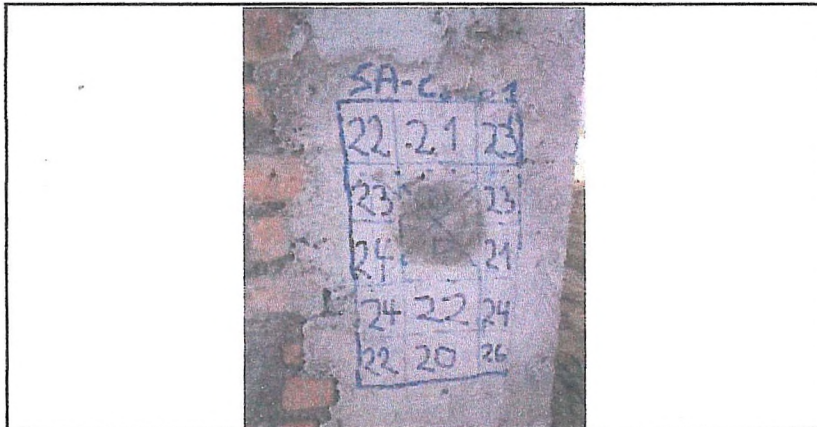 22 21 23
23 23
24 21
24 22 24
22 20 26